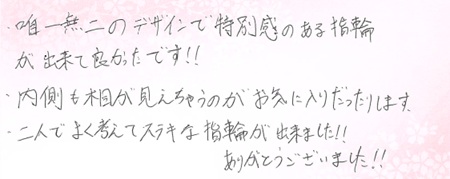 ・唯一無二のデザインで特別感のある指輪
が出来て良かったです!!
・内側も木目が見えちゃうのがお気に入りだったりします。
・二人でよく考えてステキな指輪が出来ました!!
ありがとうございました!!